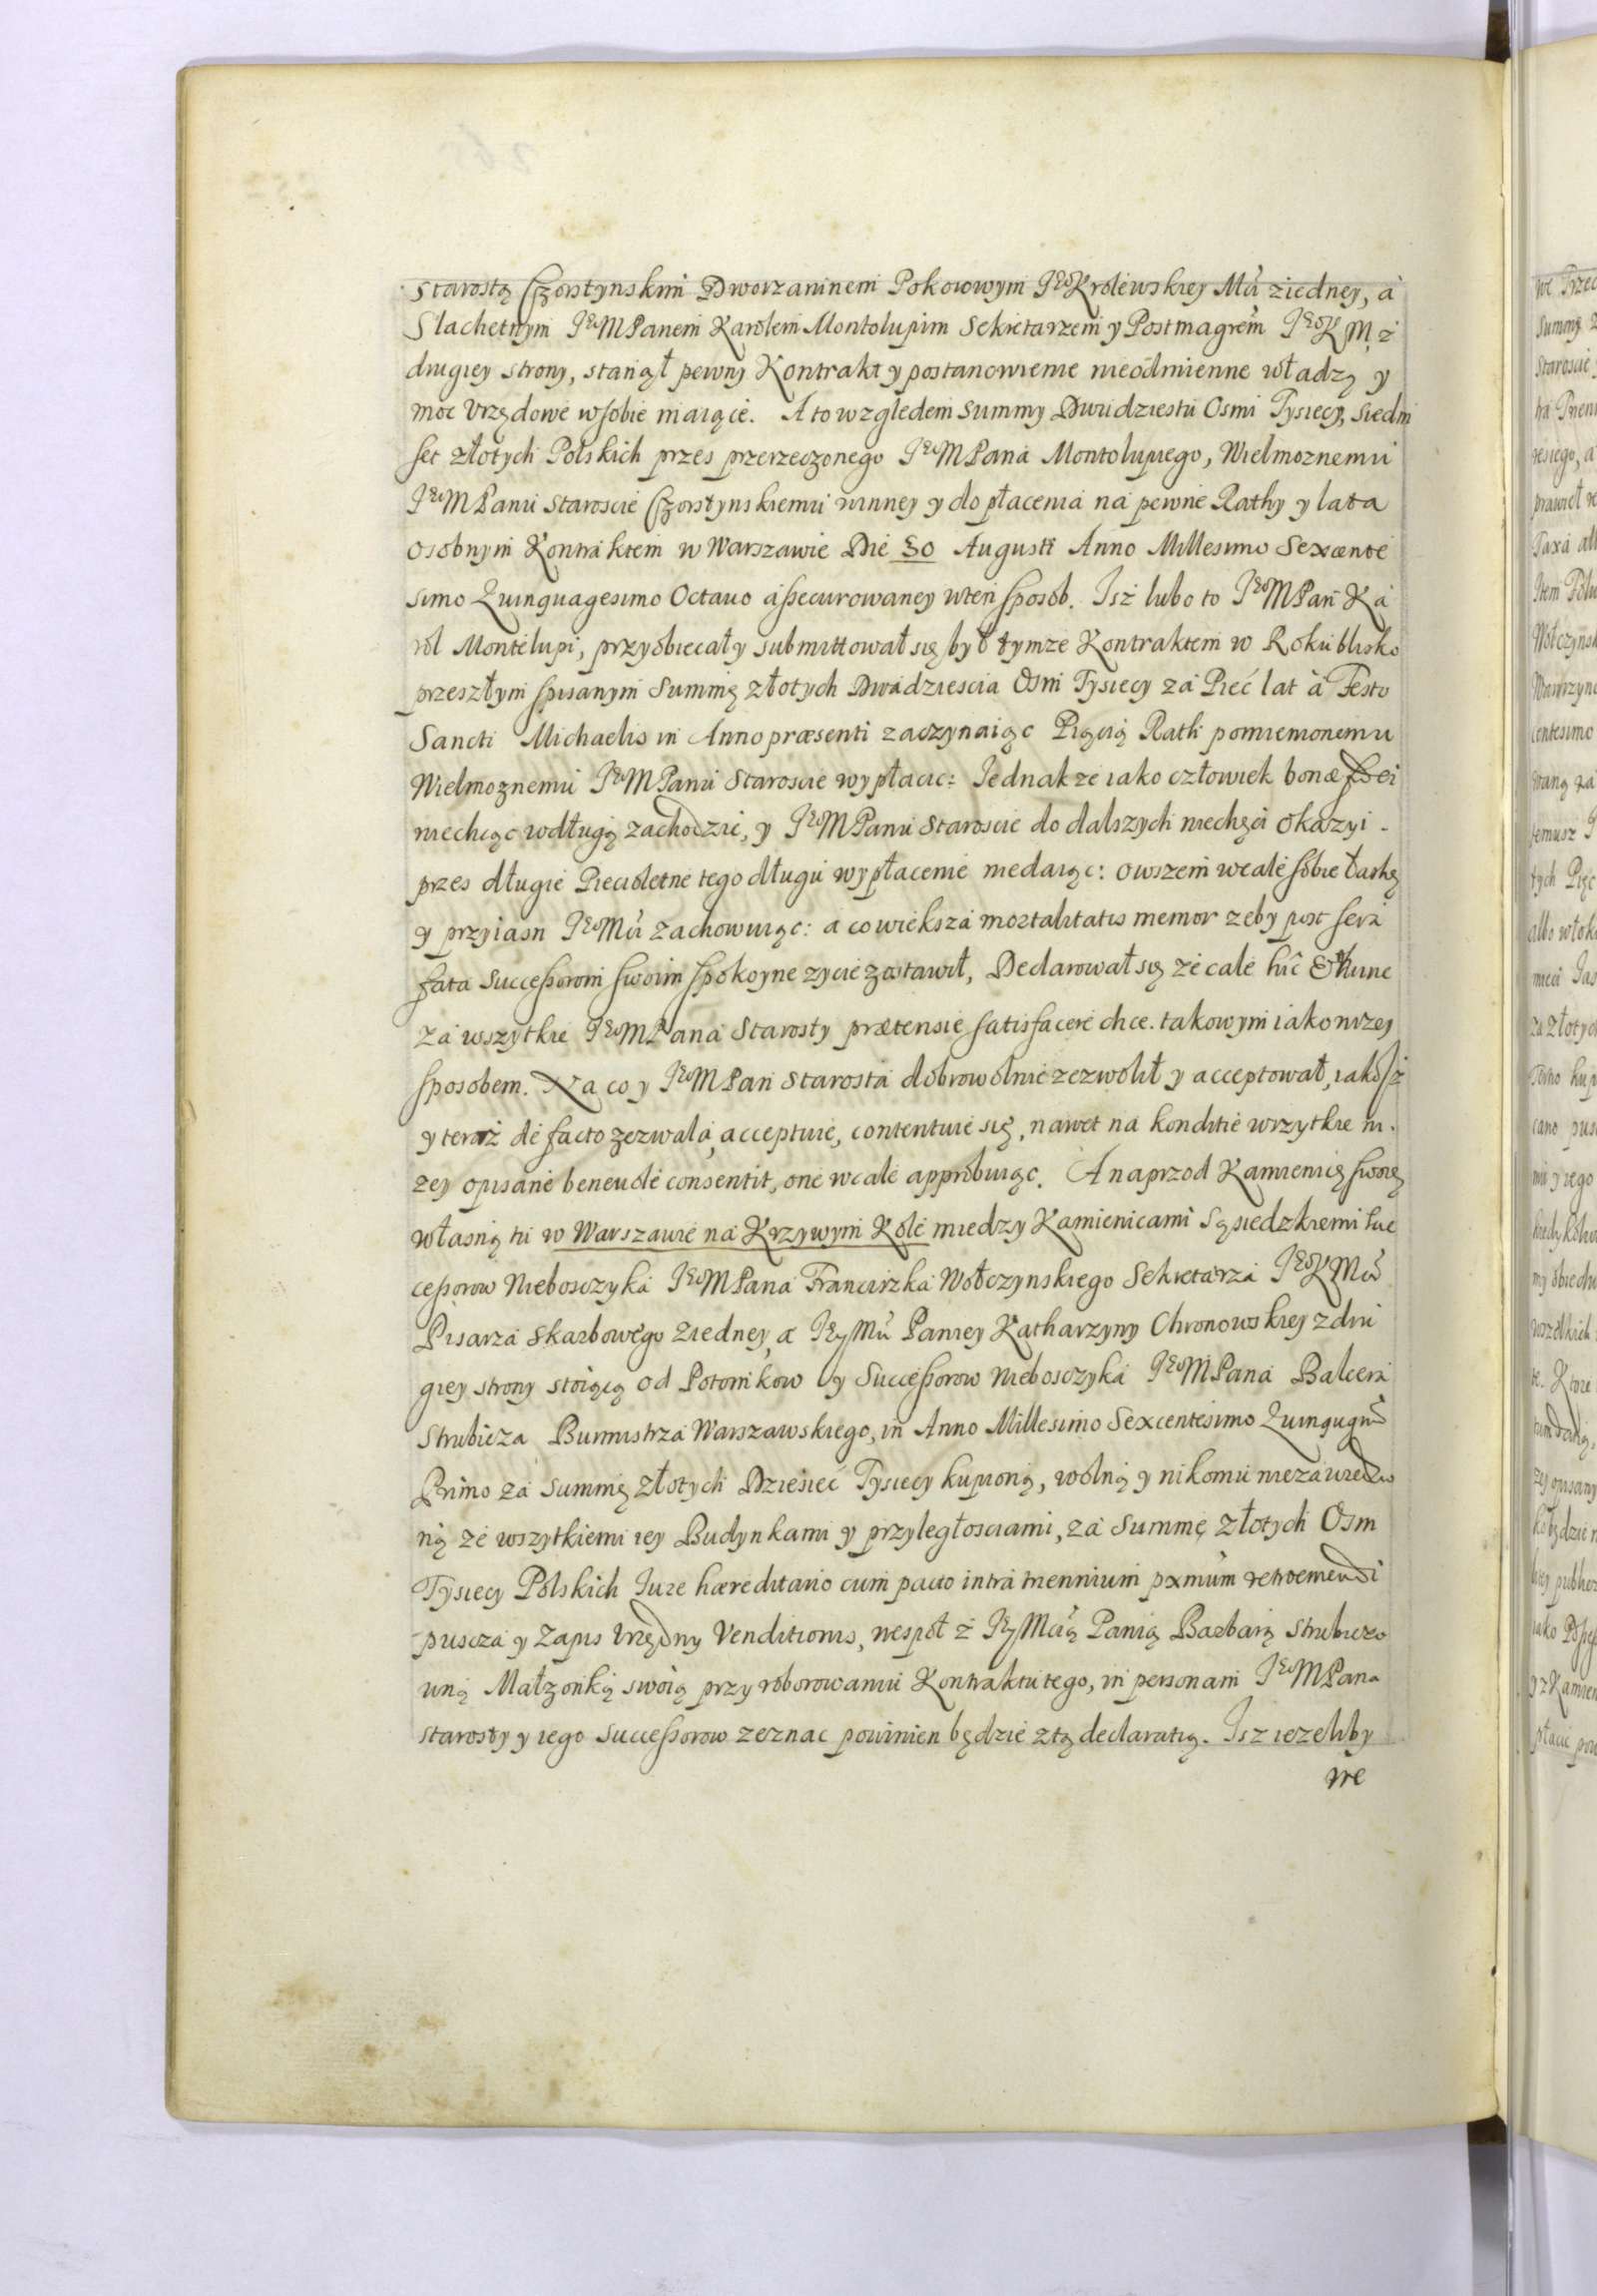 Starostą Czorstynskim Dworzaninem Pokoiowym JEo Krolewskiey Mći ziedney, á
Slachetnym JEo M Panem Karolem Montolupim Sekretarzem y Postmagrem JEo K M, z
drugiey strony, stanął pewny Kontrakt y postanowienie nieodmienne władzą y
moc Vrzędowe wsobie maiące. A to względem Summy Dwudziestu Osmi Tysiecy, Siedm
set złotych Polskich przes przerzeczonego JEo M Pana Montolupiego, Wielmoznemu
JEo M Panu Staroscie Czorstynskiemu winney y do płacenia na pewne Rathy y lata
osobnym Kontraktem w Warszawie Die 30 Augusti Anno Millesimo Sexcente
simo Quinquagesimo Octauo assecurowaney wten sposob. Isz lubo to JEo M Pan Ka
rol Montelupi, przyobiecał y submittował się był tymze Kontraktem w Roku blisko
przeszłym spisanym Summę złotych Dwadziescia Osm Tysiecy za Pieć lat à Festo
Sancti Michaelis in Anno præsenti zaczynaiąc Piącią Rath pomienionemu
Wielmoznemu JEo M Panu Staroscie wypłacic: Jednakze iako człowiek bonæ fidei
niechcąc wdługą zachodzić, y JEo M Panu Staroscie do dalszych niechęci okazyi
przes długie Piecioletne tego długu wypłacenie niedaiąc: owszem wcale sobie łaskę
y przyiazn JEo Mći zachowuiąc: a co wieksza mortalitatis memor zeby post sera
fata Successorom swoim spokoyne zycie zostawił, Declarował się ze cale hic & nunc
za wszytkie JEo M Pana Starosty prætensie satisfacere chce. takowym iako nizey
sposobem. Na co y JEo M Pan Starosta dobrowolnie zezwolił y acceptował, iakosz
y teraz de facto zezwala, acceptuie, contentuie się, nawet na konditie wszytkie ni.
zey opisane beneuole consentit, one wcale approbuiąc. A naprzod Kamienicę swoię
własną tu w Warszawie na Krzywym Kole miedzy Kamienicami Sąsiedzkiemi Suc
cessorow Nieboszczyka JEo M Pana Franciszka Wołczynskiego Sekretarza JEo K Mći
Pisarza Skarbowego ziedney, a JEy Mći Paniey Katharzyny Chronowskiey zdru
giey strony stoiącą od Potomkow y Successorow Nieboszczyka JEo M Pana Balcera
Strubicza Burmistrza Warszawskiego, in Anno Millesimo Sexcentesimo Quinquagmo
Primo za Summę złotych Dziesieć Tysiecy kupioną, wolną y nikomu niezawiedzio
ną ze wszytkiemi iey Budynkami y przyległosciami, za Summę złotych Osm
Tysiecy Polskich Iure hæreditario cum pacto intra triennium pxmum retroemendi
puscza y Zapis Vrzędny Venditionis, wespoł z JEy Mcią Panią Barbarą Strubiczo
wną Małzonką swoią przy roborowaniu Kontraktu tego, in personam JEo M Pana
Starosty y iego Successorow zeznac powinien będzie ztą declaratią. Isz iezeliby
we